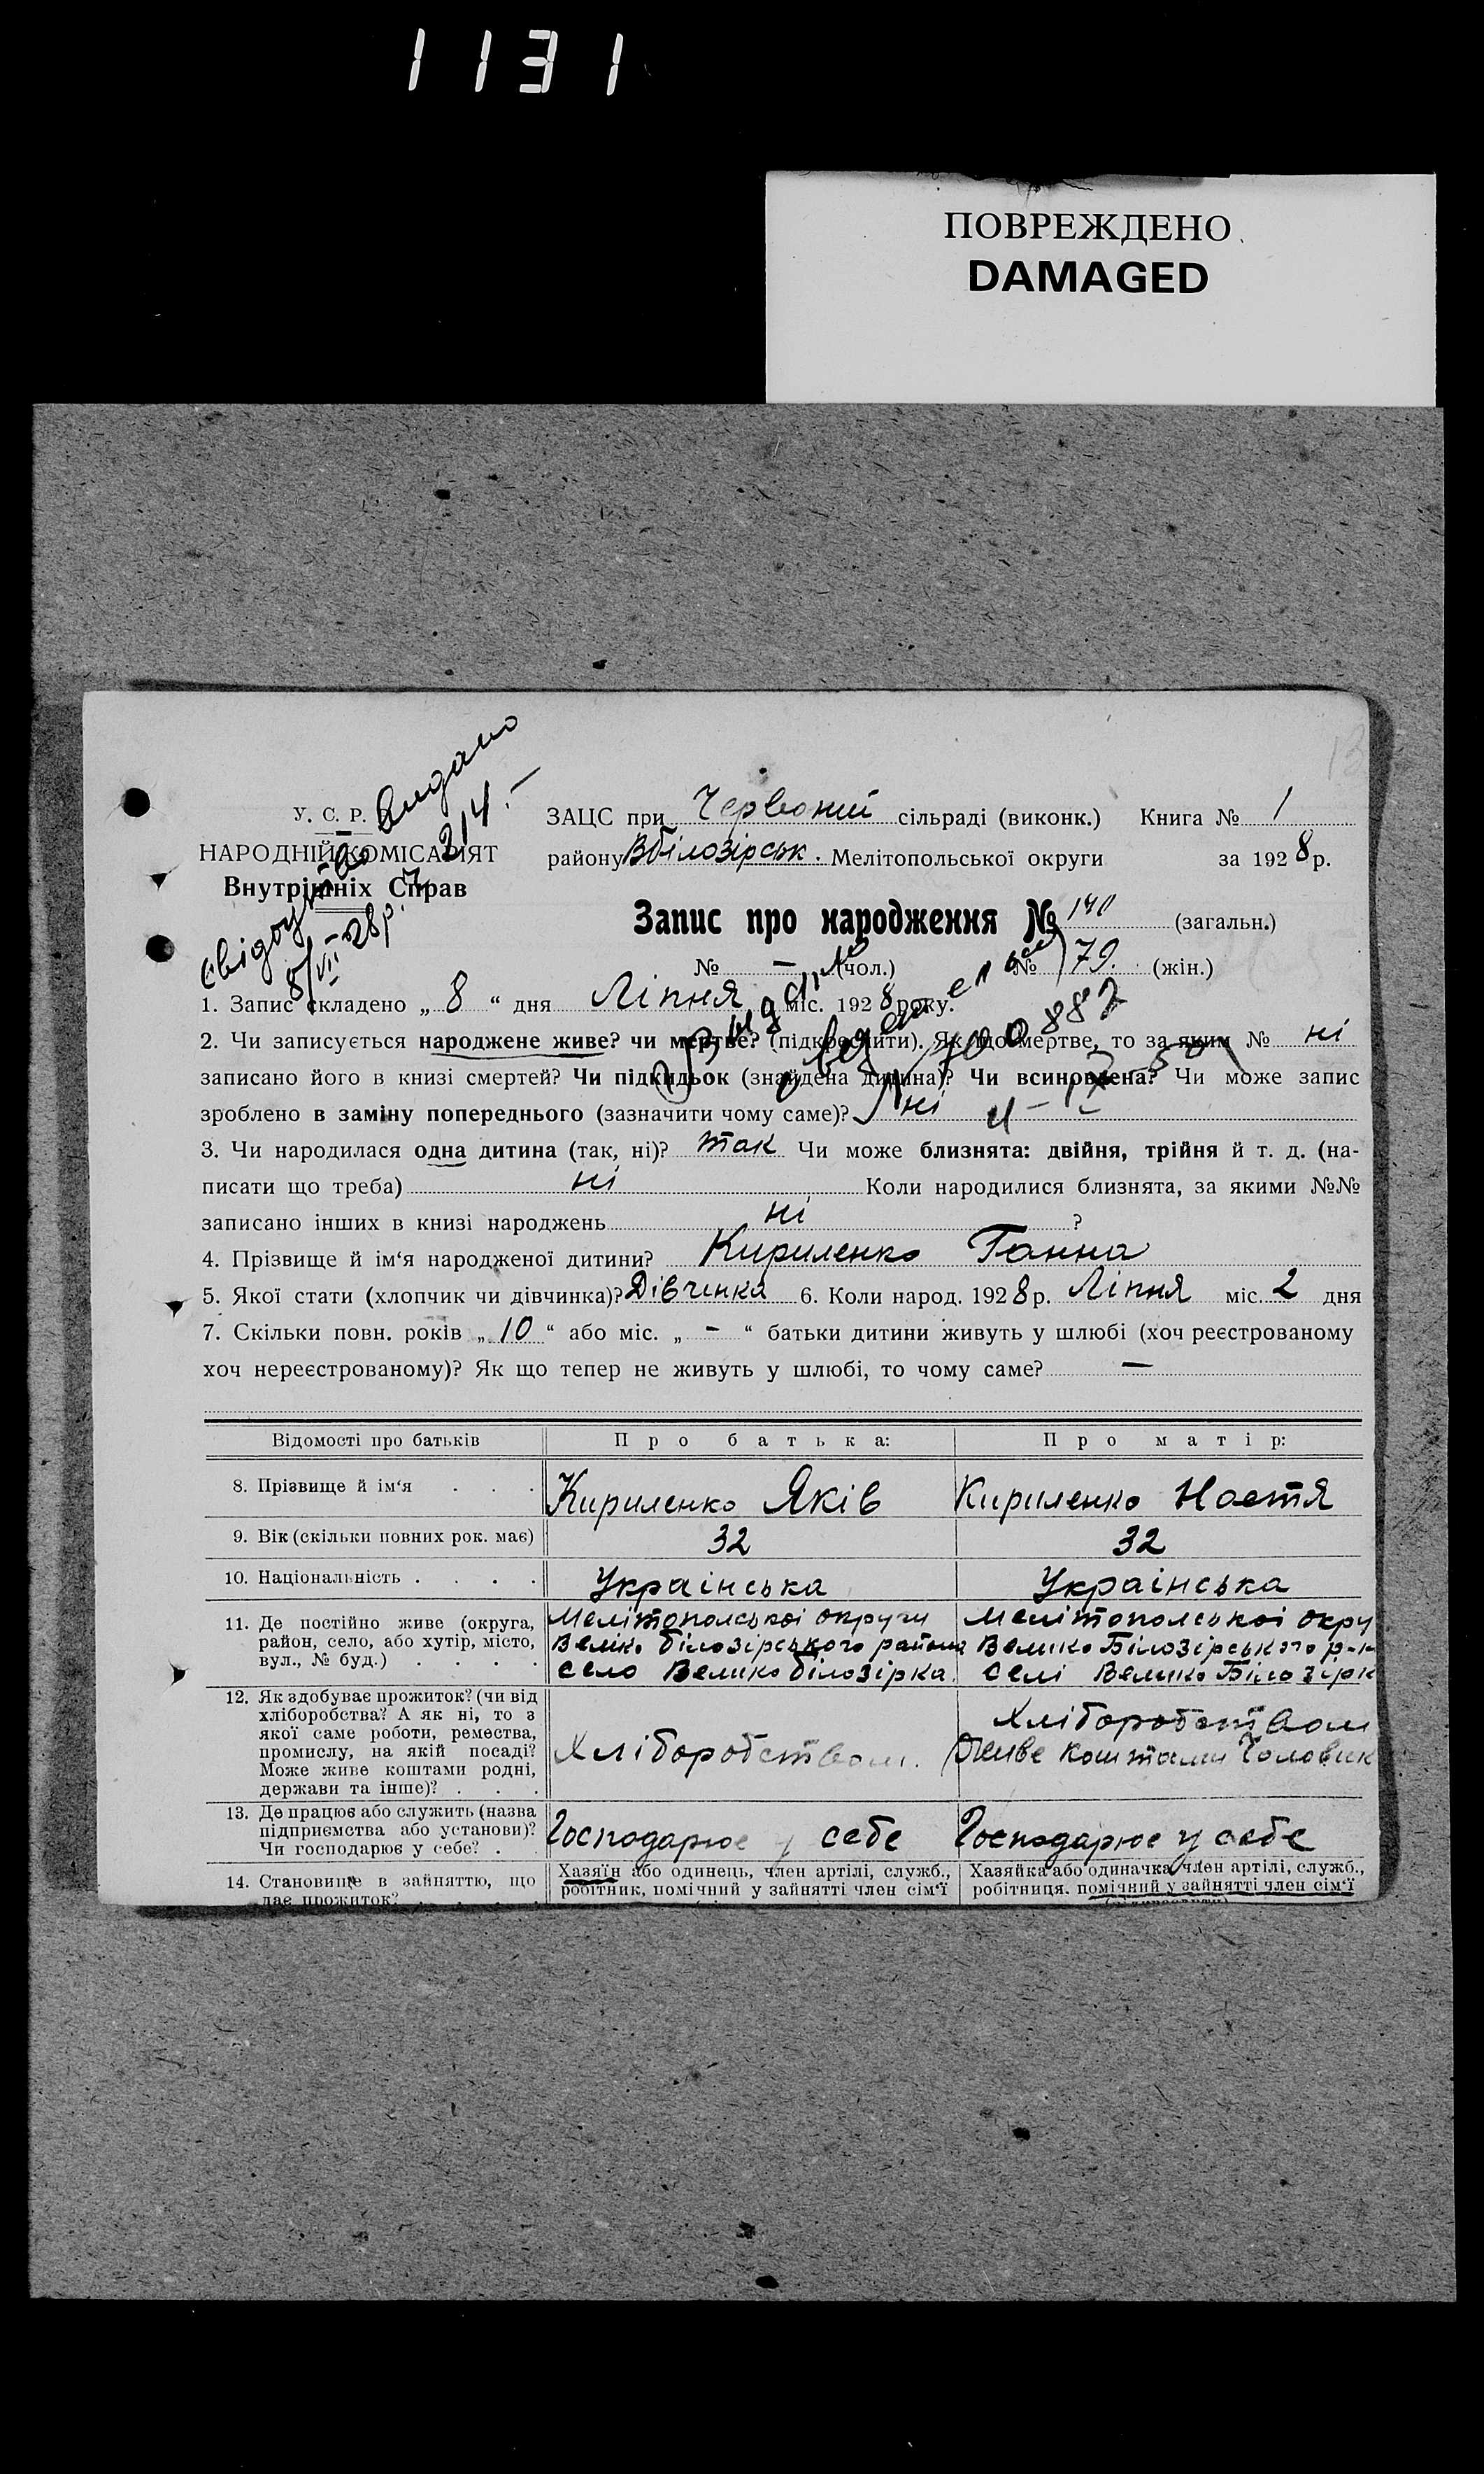 1131
ПОВРЕЖДЕНО
DAMAGED
У. С. Р.
НАРОДНІЙ КОМІСАРІЯТ
Внутрішніх Справ
Свідоцтво видано
8/VII–28р. 214.–
ЗАЦС при Червоний сільраді (виконк.) Книга № 1
району Вбілозірськ. Мелітопольської округи за 1928 р.
Запис про народження № 140 (загальн.)
№ – (чол.) № 79. (жін.)
1. Запис складено „ 8 “ дня Ліпня міс. 1928 року.
2. Чи записується народжене живе? чи мертве? (підкреслити). Як що мертве, то за яким № ні
записано його в книзі смертей? Чи підкидьок (знайдена дитина)? Чи всиновлена? Чи може запис
зроблено в заміну попереднього (зазначити чому саме)? ні
3. Чи народилася одна дитина (так, ні)? так Чи може близнята: двійня, трійня й т. д. (на-
писати що треба) ні Коли народилися близнята, за якими №№
записано інших в книзі народжень ні ?
4. Прізвище й ім‘я народженої дитини? Кириленко Ганна
5. Якої стати (хлопчик чи дівчинка)? Дівчинка 6. Коли народ. 1928 р. Ліпня міс. 2 дня
7. Скільки повн. років „ 10 “ або міс. „ – “ батьки дитини живуть у шлюбі (хоч реєстрованому
хоч нереєстрованому)? Як що тепер не живуть у шлюбі, то чому саме? –
Відомості про батьків Про батька: Про матір:
8. Прізвище й ім‘я . . . Кириленко Яків Кириленко Настя
9. Вік (скільки повних рок. має) 32 32
10. Національність . . . . Українська Українська
11. Де постійно живе (округа, Мелітопольської округи Мелітопольської окру
район, село, або хутір, місто, Веліко Білозірського района Велико Білозірського р-н
вул., № буд.) . . . . село Велико Білозірка. Селі Велико Білозірк
12. Як здобуває прожиток? (чи від
хліборобства? А як ні, то з
якої саме роботи, ремества, Хліборобством
промислу, на якій посаді? Хліборобством. Живе коштами Чоловик
Може живе коштами родні,
держави та інше)? . . .
13. Де працює або служить (назва
підприємства або установи)? Господарює у себе Господарює у себе
Чи господарює у себе? .
14. Становище в зайняттю, що Хазяїн або одинець, член артілі, служб., Хазяйка або одиначка, член артілі, служб.,
дає прожиток? . . . . робітник, помічний у зайнятті член сім‘ї робітниця, помічний у зайнятті член сім‘ї